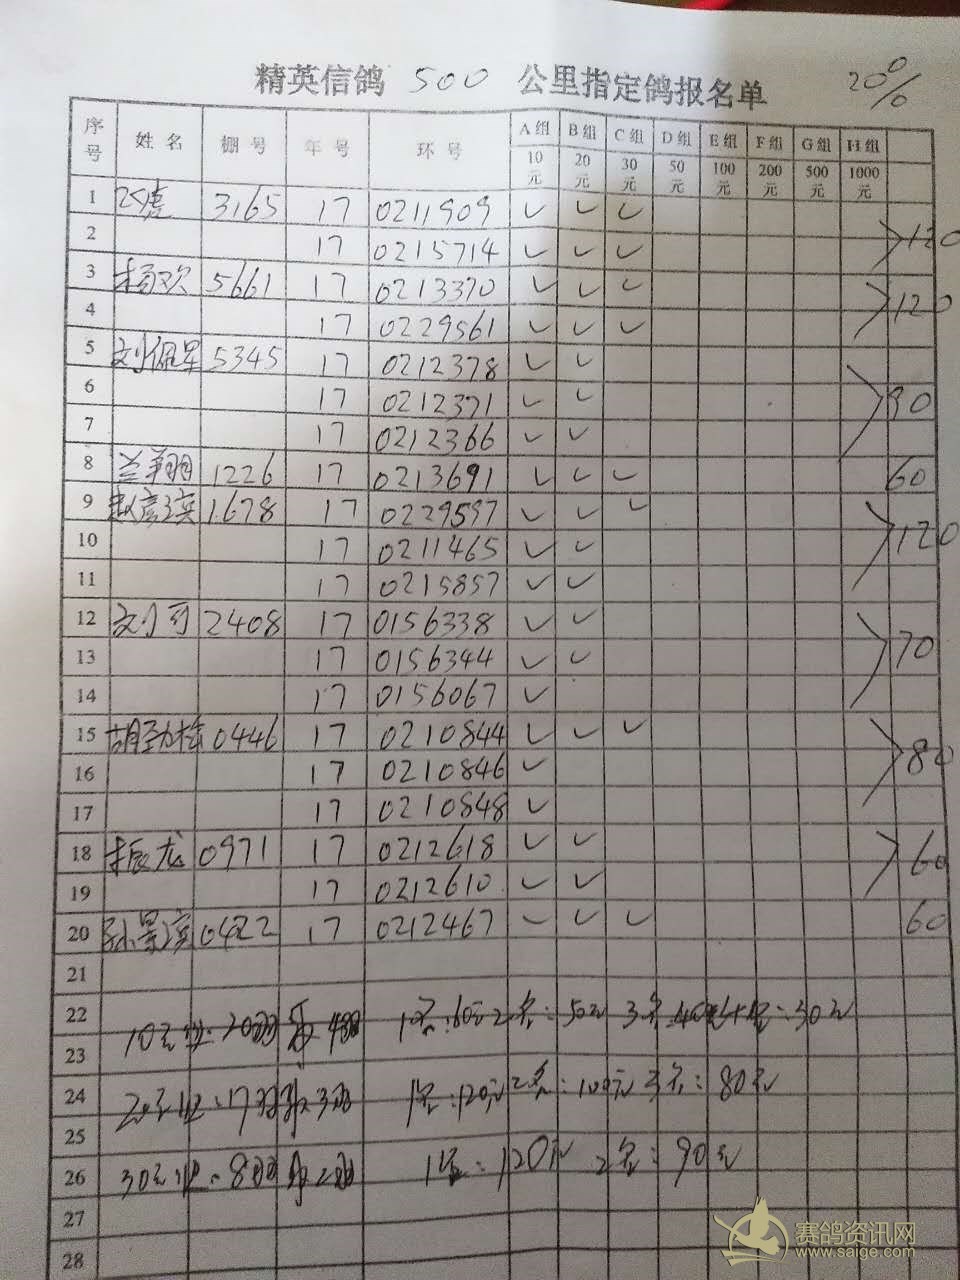 精英信鸽 500 公里指定鸽报名单 20%
序号 姓名 棚号 年号 环号 A组 B组 C组 D组 E组 F组 G组 H组
10元 20元 30元 50元 100元 200元 500元 1000元
1 3165 17 0211909 ✓ ✓ ✓
2 17 0215714 ✓ ✓ ✓ 120
3 杨欢 5661 17 0213370 ✓ ✓ ✓
4 17 0229561 ✓ ✓ ✓ 120
5 刘佩星 5345 17 0212378 ✓ ✓
6 17 0212371 ✓ ✓ 90
7 17 0212366 ✓ ✓
8 兰翔 1226 17 0213691 ✓ ✓ ✓ 60
9 赵彦滨 1678 17 0229597 ✓ ✓ ✓
10 17 0211465 ✓ ✓ 120
11 17 0215857 ✓ ✓
12 刘可 2408 17 0156338 ✓ ✓
13 17 0156344 ✓ ✓ 70
14 17 0156067 ✓
15 胡劲松 0446 17 0210844 ✓ ✓ ✓
16 17 0210846 ✓ 80
17 17 0210848 ✓
18 振龙 0971 17 0212618 ✓ ✓
19 17 0212610 ✓ ✓ 60
20 孙景滨 0422 17 0212467 ✓ ✓ ✓ 60
21
22
10元组:20羽取4羽 1名:60元 2名:50元 3名:40元 4名:30元
23
24
20元组:17羽取3羽 1名:120元 2名:100元 3名:80元
25
26
30元组:8羽取2羽 1名:120元 2名:90元
27
28
赛鸽资讯网
www.saige.com